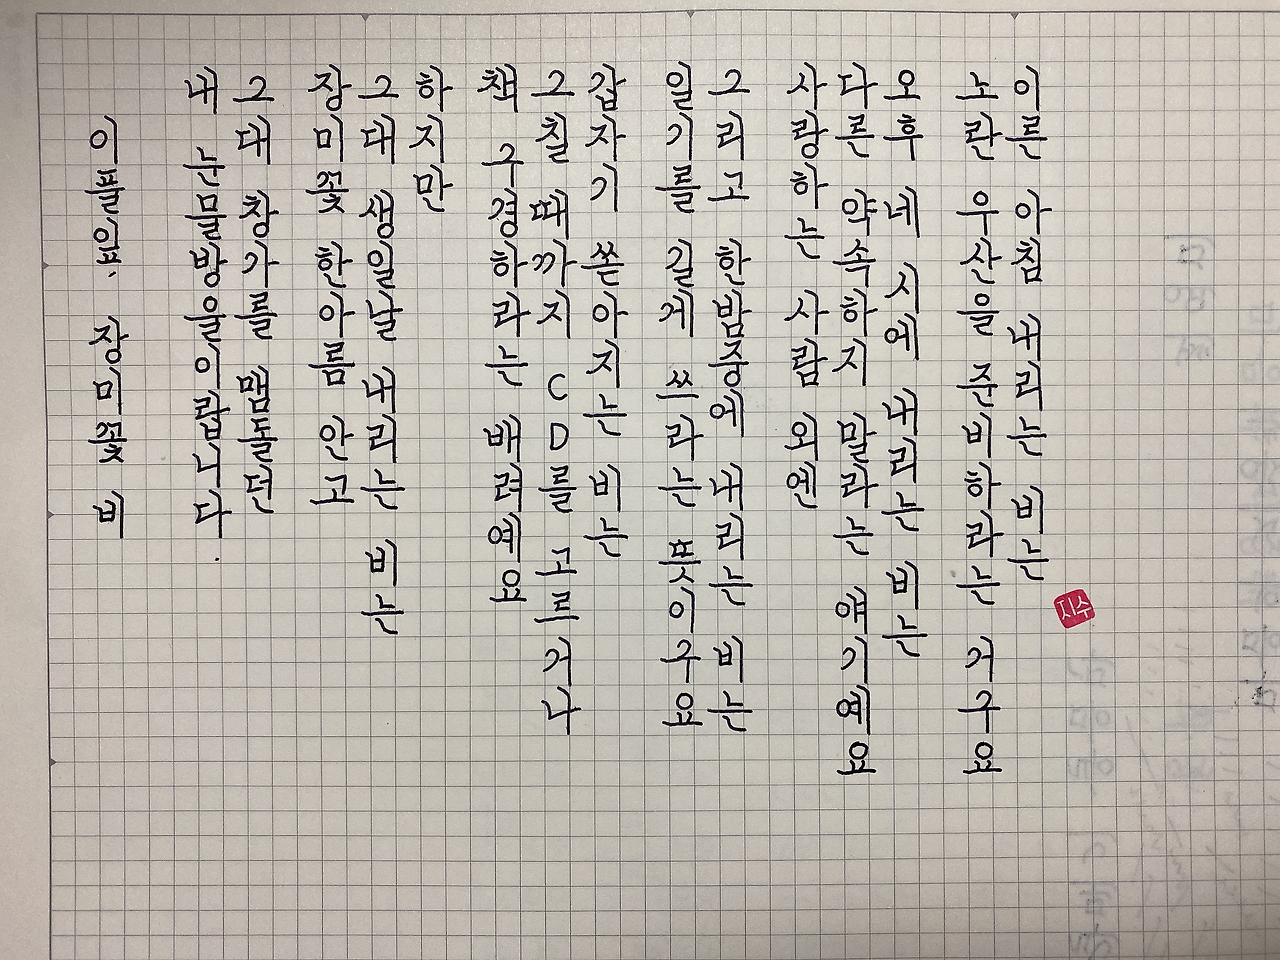 이른 아침 내리는 비는
노란 우산을 준비하라는 거구요
오후 네 시에 내리는 비는
다른 약속하지 말라는 얘기예요
사랑하는 사람 외엔
그리고 한밤중에 내리는 비는
일기를 길게 쓰라는 뜻이구요
갑자기 쏟아지는 비는
그칠 때까지 CD를 고르거나
책 구경하라는 배려예요
하지만
그대 생일날 내리는 비는
장미꽃 한아름 안고
그대 창가를 맴돌던
내 눈물방울이랍니다.
이풀잎. 장미꽃 비
지수